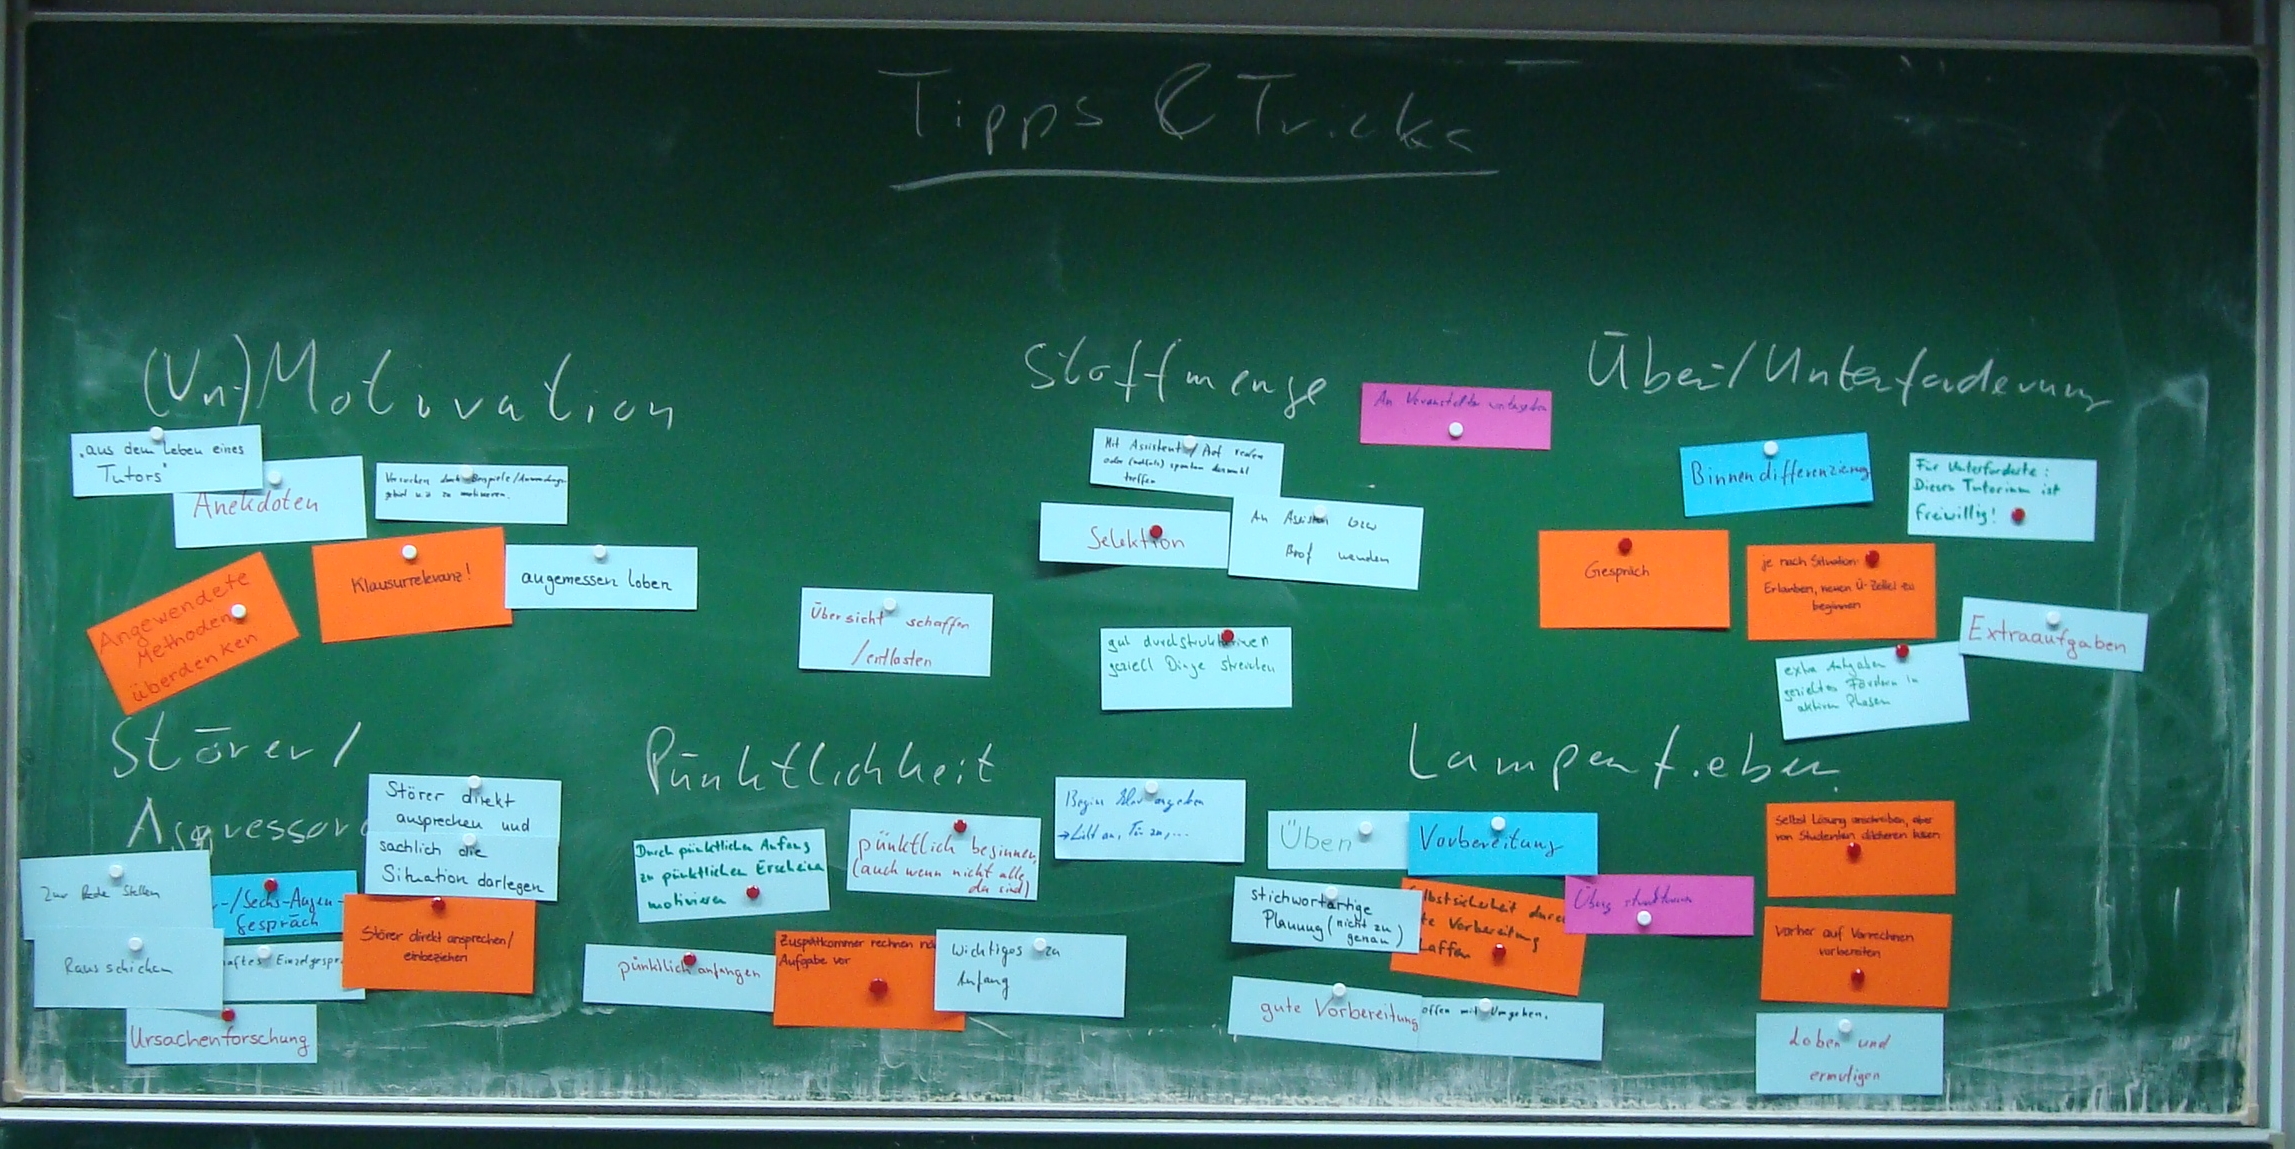 Tipps & Tricks
(Un-)Motivation
"aus dem Leben eines
Tutors"
Anekdoten
Versuchen durch Beispiele/Anwendungs-
gebiet u.ä. zu motivieren.
Angewendete
Methoden
überdenken
Klausurrelevanz!
augemessen loben
Stoffmenge
An Veranstalter weitergeben
Mit Assistent / Prof reden
oder (notfalls) spontan Auswahl
treffen
Selektion
An Assisten bzw
Prof wenden
Übersicht schaffen
/entlasten
gut durchstrukturieren
gezielt Dinge streichen
Über-/Unterforderung
Binnendifferenzierung
Für Unterforderte:
Dieses Tutorium ist
freiwillig!
Gespräch
je nach Situation:
Erlauben, neuen Ü-Zettel zu
beginnen
Extraaufgaben
extra Aufgaben
gezieltes Fördern in
aktiven Phasen
Störer/
Aggressoren
Störer direkt
ansprechen und
sachlich die
Situation darlegen
Zur Rede stellen
-/Sechs-Augen-
Gespräch
Störer direkt ansprechen/
einbeziehen
Raus schicken
aftes Einzelgespr
Ursachenforschung
Pünktlichkeit
Durch pünktlichen Anfang
zu pünktlichen Erscheinen
motivieren
pünktlich beginnen
(auch wenn nicht alle
da sind)
Beginn klar angeben
→ Licht an, Tür zu, ...
pünktlich anfangen
Zuspätkommer rechnen nä
Aufgabe vor
Wichtiges zu
Anfang
Lampenfieber
Üben
Vorbereitung
Selbst Lösung anschreiben, aber
von Studenten diktieren lassen
stichwortartige
Planung (nicht zu
genau)
lbstsicherheit durch
te Vorbereitung
haffen
Übung strukturieren
Vorher auf Vorrechnen
vorbereiten
gute Vorbereitung
offen mit Umgehen.
Loben und
ermutigen